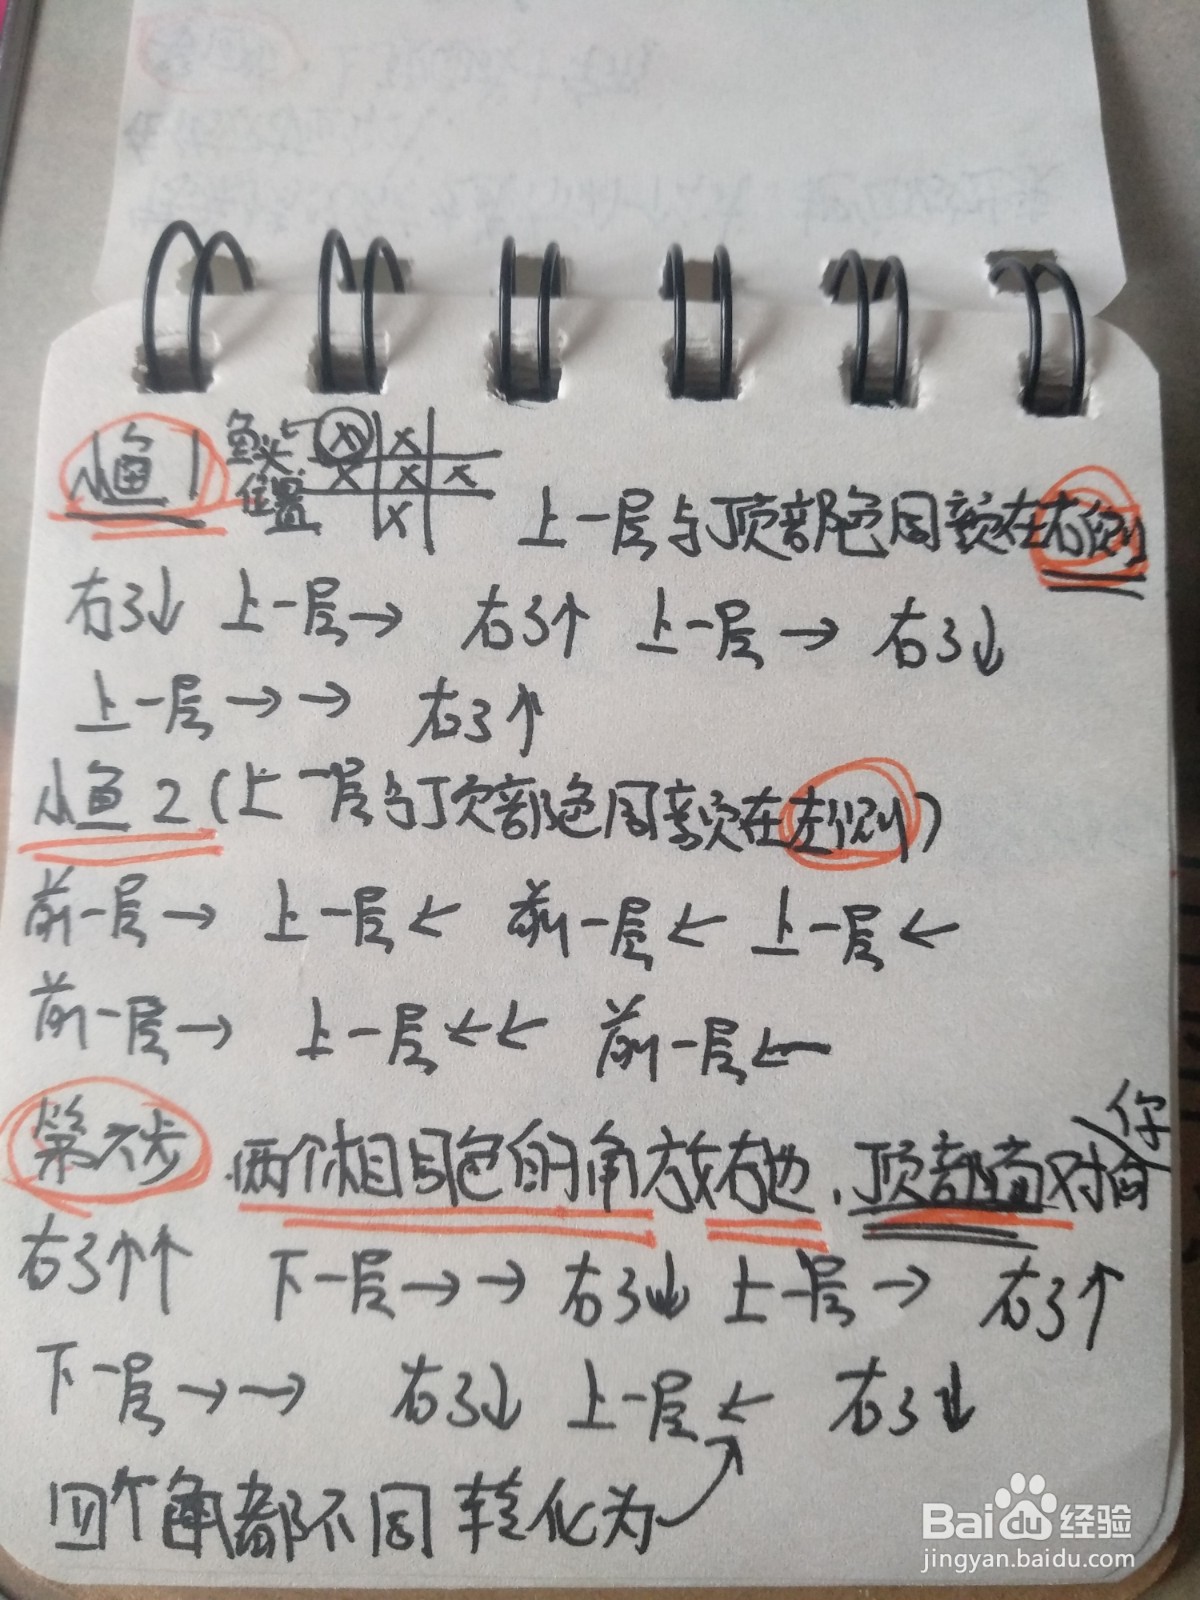 小鱼1 鱼头位置 ← x x
x x x
x
上一层与顶部色同颜在右侧
右3↓ 上一层→ 右3↑ 上一层→ 右3↓
上一层→→ 右3↑
小鱼2(上一层与顶部色同颜在左侧)
前一层→ 上一层← 前一层← 上一层←
前一层→ 上一层←← 前一层←
第六步 两个相同色的角放右边,顶部面对向你
右3↑↑ 下一层→→ 右3↓ 上一层→ 右3↑
下一层→→ 右3↓ 上一层← 右3↓
四个角都不同 转化为
Baidu经验
jingyan.baidu.com